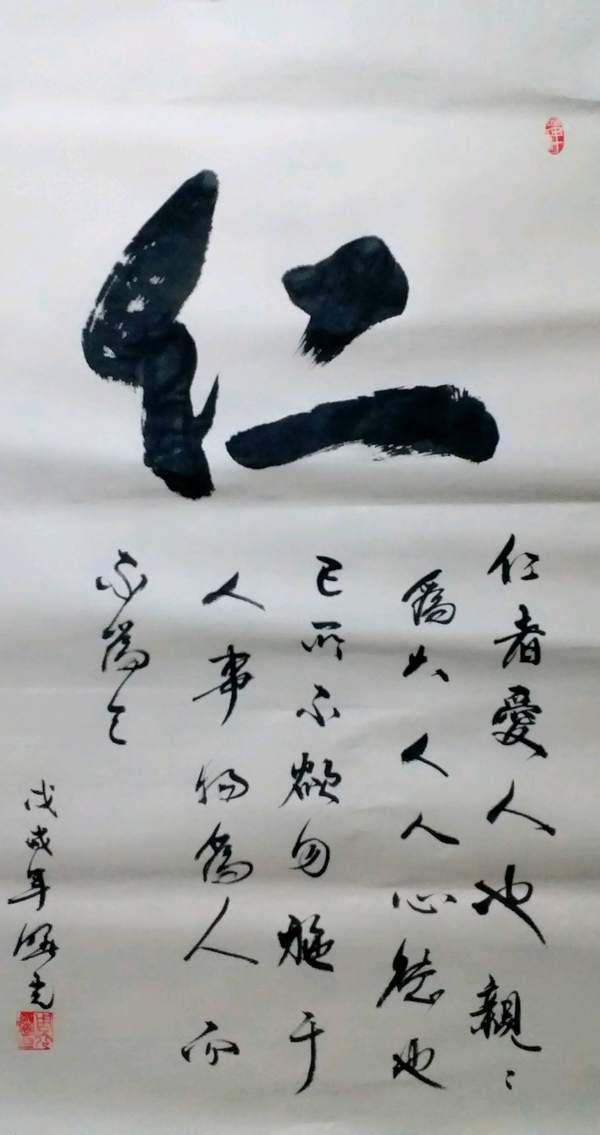 仁
仁者愛人也親〻
為大人人心德也
己所不欲勿施于
人事物為人而
為
戊戌年光